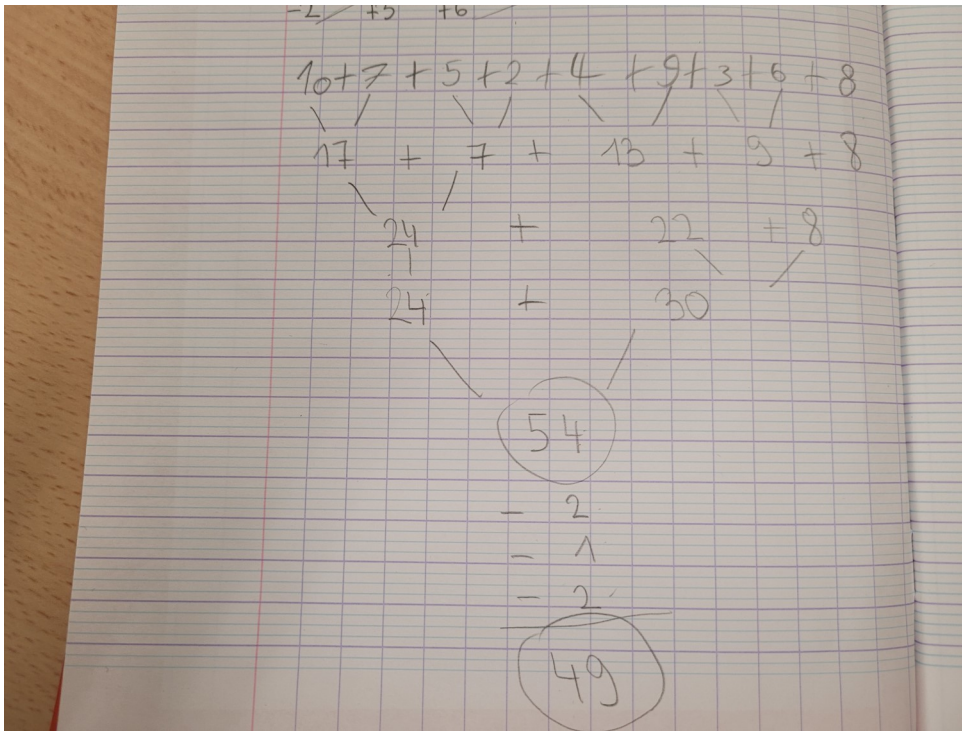 -2 +5 +6
10+7 + 5 +2 + 4 + 9+ 3 +6 + 8
17 + 7 + 13 + 9 + 8
24 + 22 + 8
24 + 30
54
- 2
- 1
- 2
49